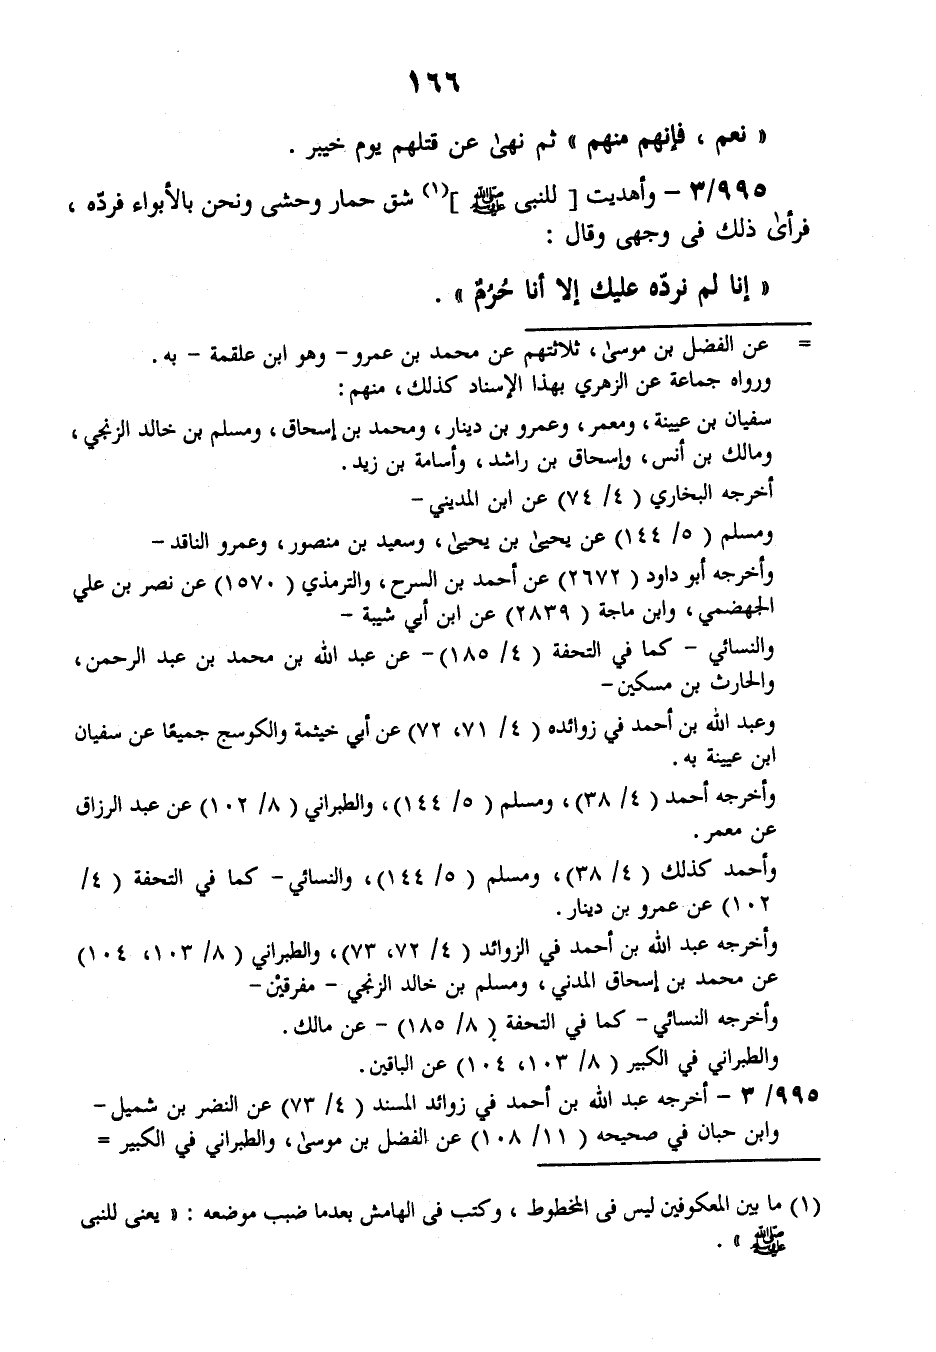 ١٦٦
« نعم ، فإنهم منهم » ثم نهىٰ عن قتلهم يوم خيبر .
٣/٩٩٥ – وأهديت [ للنبى ﷺ ](١) شق حمار وحشى ونحن بالأبواء فردّه ،
فرأىٰ ذلك فى وجهى وقال :
« إنا لم نردّه عليك إلا أنا حُرُمٌ » .
= عن الفضل بن موسىٰ، ثلاثتهم عن محمد بن عمرو– وهو ابن علقمة – به.
ورواه جماعة عن الزهري بهذا الإسناد كذلك، منهم:
سفيان بن عيينة، ومعمر، وعمرو بن دينار، ومحمد بن إسحاق، ومسلم بن خالد الزنجي،
ومالك بن أنس، وإسحاق بن راشد، وأسامة بن زيد.
أخرجه البخاري ( ٤/ ٧٤) عن ابن المديني–
ومسلم ( ٥/ ١٤٤) عن يحيىٰ بن يحيىٰ، وسعيد بن منصور، وعمرو الناقد–
وأخرجه أبو داود ( ٢٦٧٢) عن أحمد بن السرح، والترمذي ( ١٥٧٠) عن نصر بن علي
الجهضمي، وابن ماجة ( ٢٨٣٩) عن ابن أبي شيبة –
والنسائي – كما في التحفة ( ٤/ ١٨٥)– عن عبد الله بن محمد بن عبد الرحمن،
والحارث بن مسكين–
وعبد الله بن أحمد في زوائده ( ٤/ ٧١، ٧٢) عن أبي خيثمة والكوسج جميعًا عن سفيان
ابن عيينة به.
وأخرجه أحمد ( ٤/ ٣٨)، ومسلم ( ٥/ ١٤٤)، والطبراني ( ٨/ ١٠٢) عن عبد الرزاق
عن معمر.
وأحمد كذلك ( ٤/ ٣٨)، ومسلم ( ٥/ ١٤٤)، والنسائي– كما في التحفة ( ٤/
١٠٢) عن عمرو بن دينار.
وأخرجه عبد الله بن أحمد في الزوائد ( ٤/ ٧٢، ٧٣)، والطبراني ( ٨/ ١٠٣، ١٠٤)
عن محمد بن إسحاق المدني، ومسلم بن خالد الزنجي – مفرقيْن–
وأخرجه النسائي– كما في التحفة ( ٨/ ١٨٥) – عن مالك.
والطبراني في الكبير ( ٨/ ١٠٣، ١٠٤) عن الباقين.
٩٩٥/ ٣ – أخرجه عبد الله بن أحمد في زوائد المسند ( ٤/ ٧٣) عن النضر بن شميل–
وابن حبان في صحيحه ( ١١/ ١٠٨) عن الفضل بن موسىٰ، والطبراني في الكبير =
(١) ما بين المعكوفين ليس فى المخطوط ، وكتب فى الهامش بعدما ضبب موضعه : « يعنى للنبى
ﷺ » .